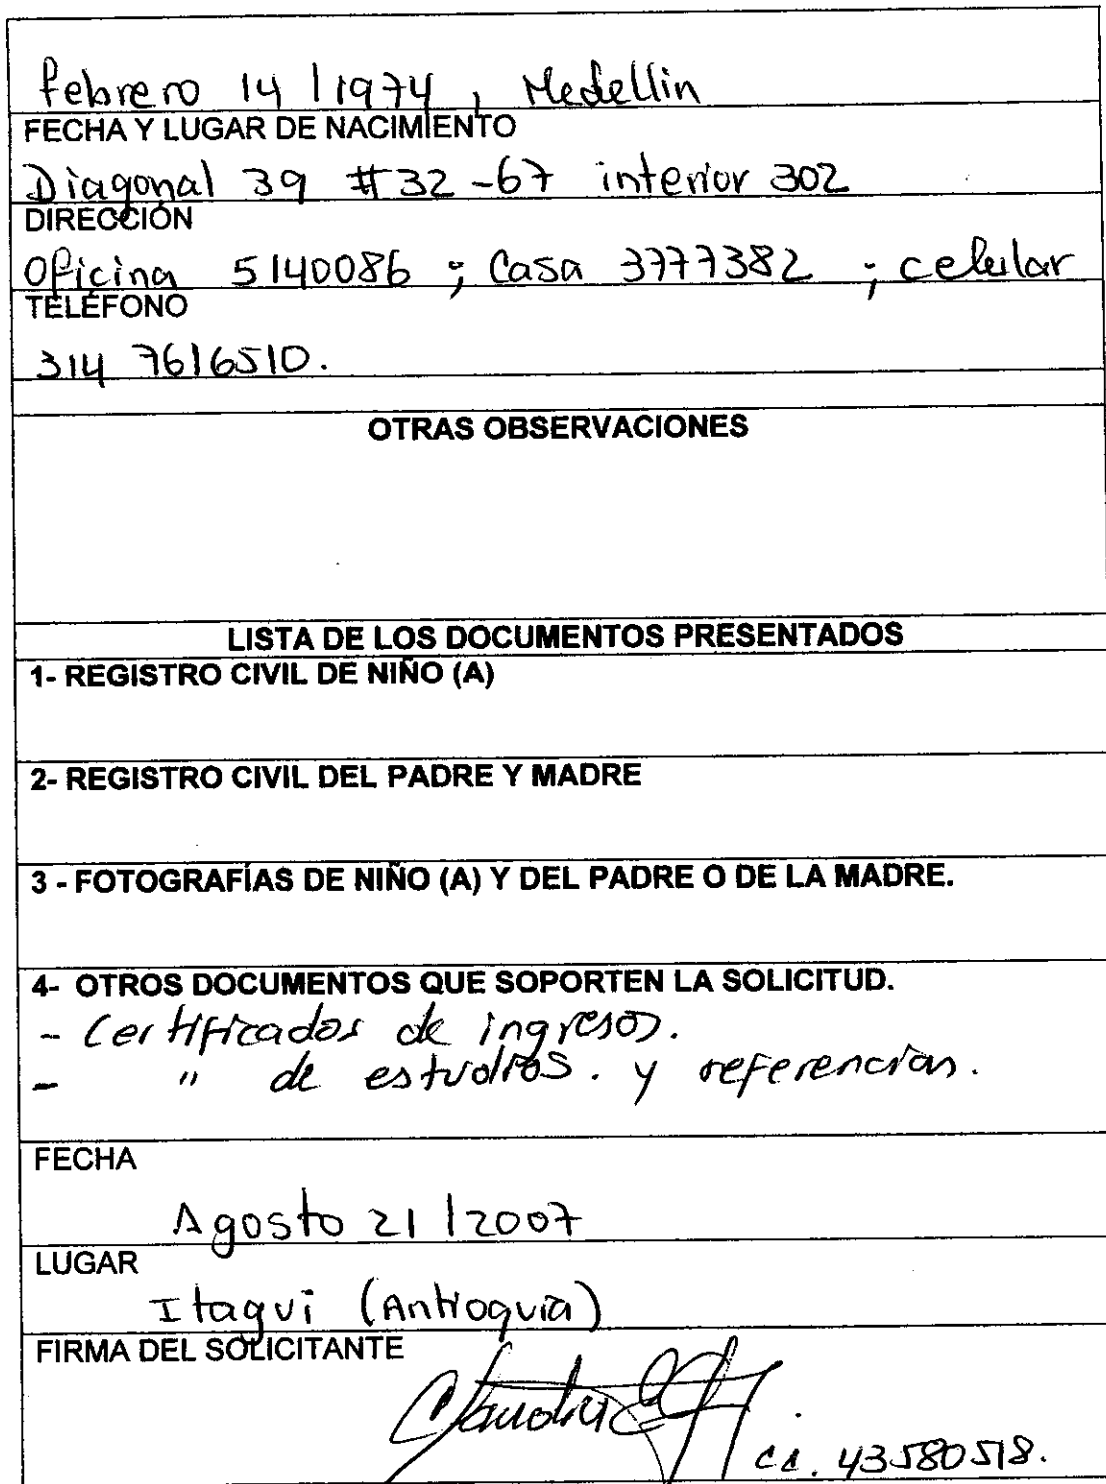 febrero 14 / 1974, Medellin
FECHA Y LUGAR DE NACIMIENTO
Diagonal 39 #32-67 interior 302
DIRECCIÓN
Oficina 5140086 ; Casa 3777382 ; celular
TELÉFONO
314 7616510.
OTRAS OBSERVACIONES
LISTA DE LOS DOCUMENTOS PRESENTADOS
1- REGISTRO CIVIL DE NIÑO (A)
2- REGISTRO CIVIL DEL PADRE Y MADRE
3 - FOTOGRAFÍAS DE NIÑO (A) Y DEL PADRE O DE LA MADRE.
4- OTROS DOCUMENTOS QUE SOPORTEN LA SOLICITUD.
- Certificados de ingresos.
- " de estudios. y referencias.
FECHA
Agosto 21 / 2007
LUGAR
Itagui (Antioquia)
FIRMA DEL SOLICITANTE
Claudia
cc. 43580518.